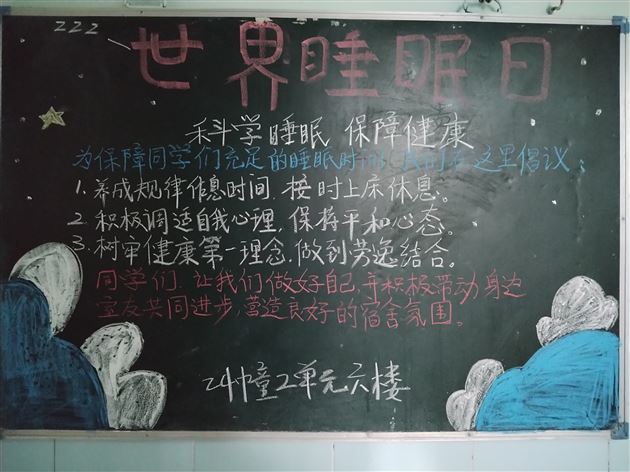 z z z
世界睡眠日
科学睡眠 保障健康
为保障同学们充足的睡眠时间,我们在这里倡议:
1.养成规律作息时间,按时上床休息。
2.积极调适自我心理,保持平和心态。
3.树牢健康第一理念,做到劳逸结合。
同学们,让我们做好自己,并积极带动身边
室友共同进步,营造良好的宿舍氛围。
幢2单元六楼